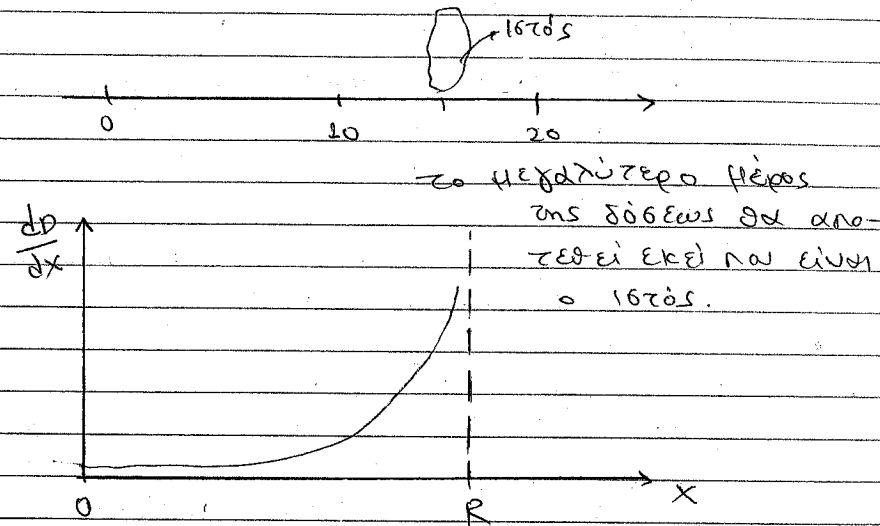 ιστός
0 10 20
το μεγαλύτερο μέρος
της δόσεως θα απο-
τεθεί εκεί που είναι
ο ιστός.
dD
dx
0 R x